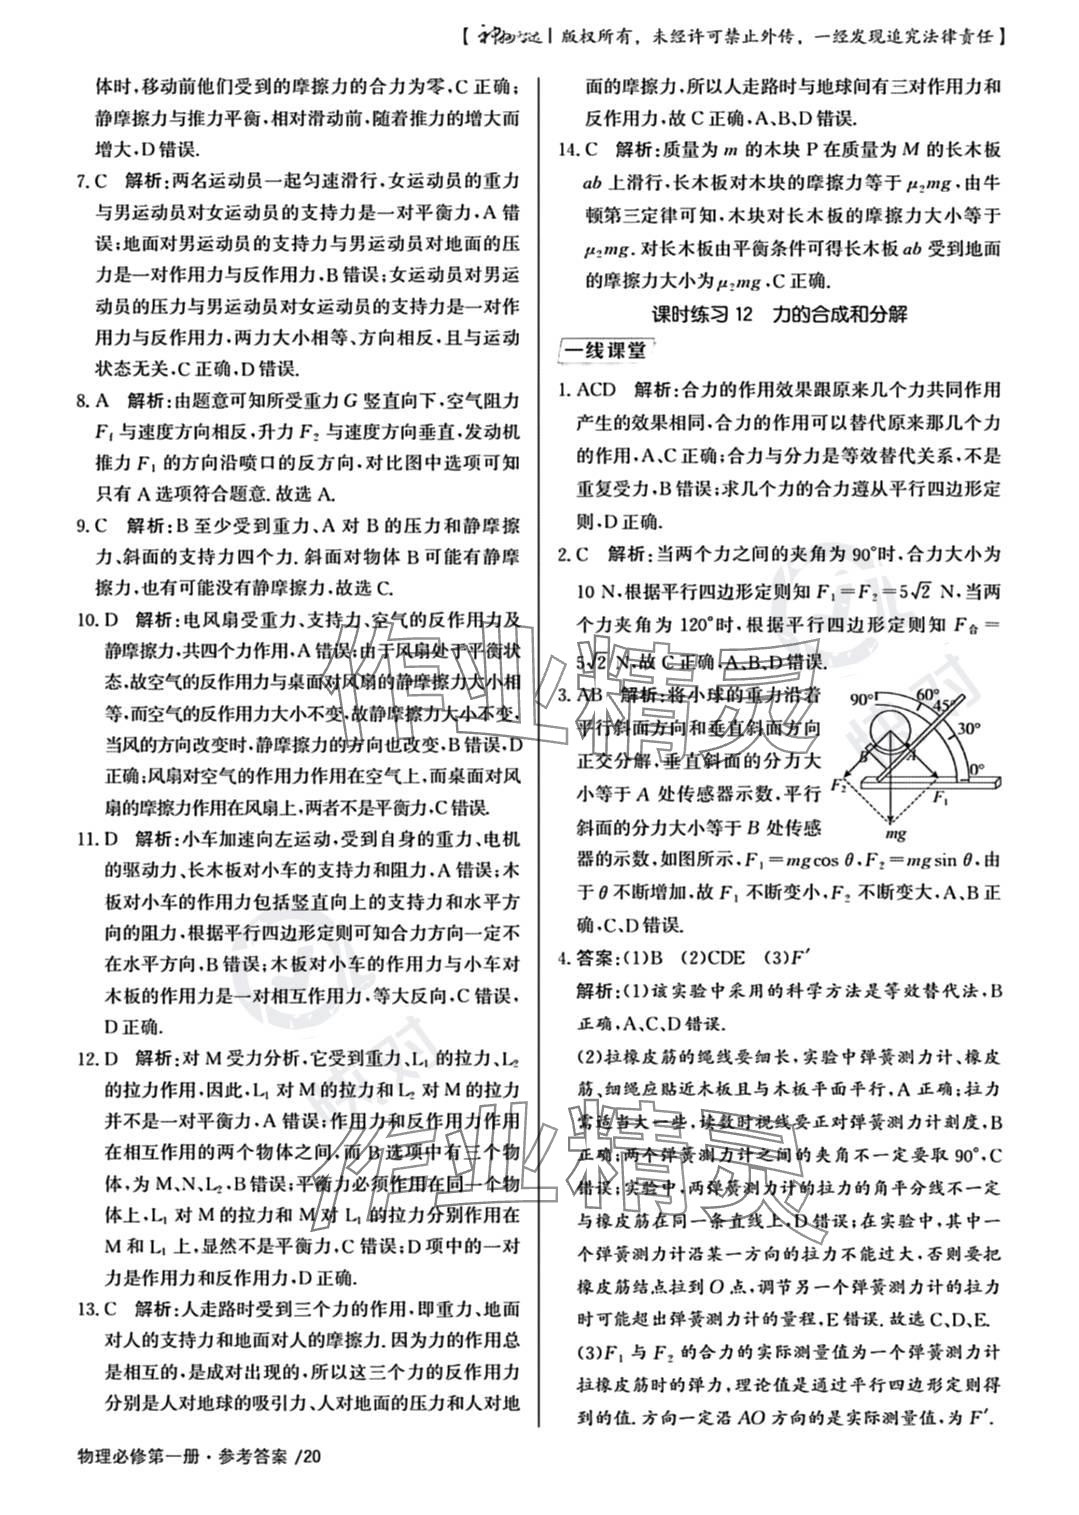 【神州文达｜版权所有，未经许可禁止外传，一经发现追究法律责任】
体时,移动前他们受到的摩擦力的合力为零,C正确;
静摩擦力与推力平衡,相对滑动前,随着推力的增大而
增大,D错误.
7. C 解析:两名运动员一起匀速滑行,女运动员的重力
与男运动员对女运动员的支持力是一对平衡力,A错
误;地面对男运动员的支持力与男运动员对地面的压
力是一对作用力与反作用力,B错误;女运动员对男运
动员的压力与男运动员对女运动员的支持力是一对作
用力与反作用力,两力大小相等、方向相反,且与运动
状态无关,C正确,D错误.
8. A 解析:由题意可知所受重力G竖直向下,空气阻力
Ff与速度方向相反,升力F₂与速度方向垂直,发动机
推力F₁的方向沿喷口的反方向,对比图中选项可知
只有A选项符合题意.故选A.
9. C 解析:B至少受到重力、A对B的压力和静摩擦
力、斜面的支持力四个力.斜面对物体B可能有静摩
擦力,也有可能没有静摩擦力,故选C.
10. D 解析:电风扇受重力、支持力、空气的反作用力及
静摩擦力,共四个力作用,A错误;由于风扇处于平衡状
态,故空气的反作用力与桌面对风扇的静摩擦力大小相
等,而空气的反作用力大小不变,故静摩擦力大小不变,
当风的方向改变时,静摩擦力的方向也改变,B错误,D
正确;风扇对空气的作用力作用在空气上,而桌面对风
扇的摩擦力作用在风扇上,两者不是平衡力,C错误.
11. D 解析:小车加速向左运动,受到自身的重力、电机
的驱动力、长木板对小车的支持力和阻力,A错误;木
板对小车的作用力包括竖直向上的支持力和水平方
向的阻力,根据平行四边形定则可知合力方向一定不
在水平方向,B错误;木板对小车的作用力与小车对
木板的作用力是一对相互作用力,等大反向,C错误,
D正确.
12. D 解析:对M受力分析,它受到重力、L₁的拉力、L₂
的拉力作用,因此,L₁对M的拉力和L₂对M的拉力
并不是一对平衡力,A错误;作用力和反作用力作用
在相互作用的两个物体之间,而B选项中有三个物
体,为M、N、L₂,B错误;平衡力必须作用在同一个物
体上,L₁对M的拉力和M对L₁的拉力分别作用在
M和L₁上,显然不是平衡力,C错误;D项中的一对
力是作用力和反作用力,D正确.
13. C 解析:人走路时受到三个力的作用,即重力、地面
对人的支持力和地面对人的摩擦力.因为力的作用总
是相互的,是成对出现的,所以这三个力的反作用力
分别是人对地球的吸引力、人对地面的压力和人对地
面的摩擦力,所以人走路时与地球间有三对作用力和
反作用力,故C正确,A、B、D错误.
14. C 解析:质量为m的木块P在质量为M的长木板
ab上滑行,长木板对木块的摩擦力等于μ₂mg,由牛
顿第三定律可知,木块对长木板的摩擦力大小等于
μ₂mg.对长木板由平衡条件可得长木板ab受到地面
的摩擦力大小为μ₂mg,C正确.
课时练习12 力的合成和分解
一线课堂
1. ACD 解析:合力的作用效果跟原来几个力共同作用
产生的效果相同,合力的作用可以替代原来那几个力
的作用,A、C正确;合力与分力是等效替代关系,不是
重复受力,B错误;求几个力的合力遵从平行四边形定
则,D正确.
2. C 解析:当两个力之间的夹角为90°时,合力大小为
10 N,根据平行四边形定则知F₁=F₂=5√2 N,当两
个力夹角为120°时,根据平行四边形定则知F合=
5√2 N,故C正确,A、B、D错误.
3. AB 解析:将小球的重力沿着
平行斜面方向和垂直斜面方向
正交分解,垂直斜面的分力大
小等于A处传感器示数,平行
斜面的分力大小等于B处传感
器的示数,如图所示,F₁=mgcos θ,F₂=mgsin θ,由
于θ不断增加,故F₁不断变小,F₂不断变大,A、B正
确,C、D错误.
90°
60°
45°
30°
0°
B
A
F₂
F₁
mg
4. 答案:(1)B (2)CDE (3)F′
解析:(1)该实验中采用的科学方法是等效替代法,B
正确,A、C、D错误.
(2)拉橡皮筋的绳线要细长,实验中弹簧测力计、橡皮
筋、细绳应贴近木板且与木板平面平行,A正确;拉力
需适当大一些,读数时视线要正对弹簧测力计刻度,B
正确;两个弹簧测力计之间的夹角不一定要取90°,C
错误;实验中,两弹簧测力计的拉力的角平分线不一定
与橡皮筋在同一条直线上,D错误;在实验中,其中一
个弹簧测力计沿某一方向的拉力不能过大,否则要把
橡皮筋结点拉到O点,调节另一个弹簧测力计的拉力
时可能超出弹簧测力计的量程,E错误.故选C、D、E.
(3)F₁与F₂的合力的实际测量值为一个弹簧测力计
拉橡皮筋时的弹力,理论值是通过平行四边形定则得
到的值.方向一定沿AO方向的是实际测量值,为F′.
物理必修第一册·参考答案 /20
作业精灵
作业精灵
快对
快对